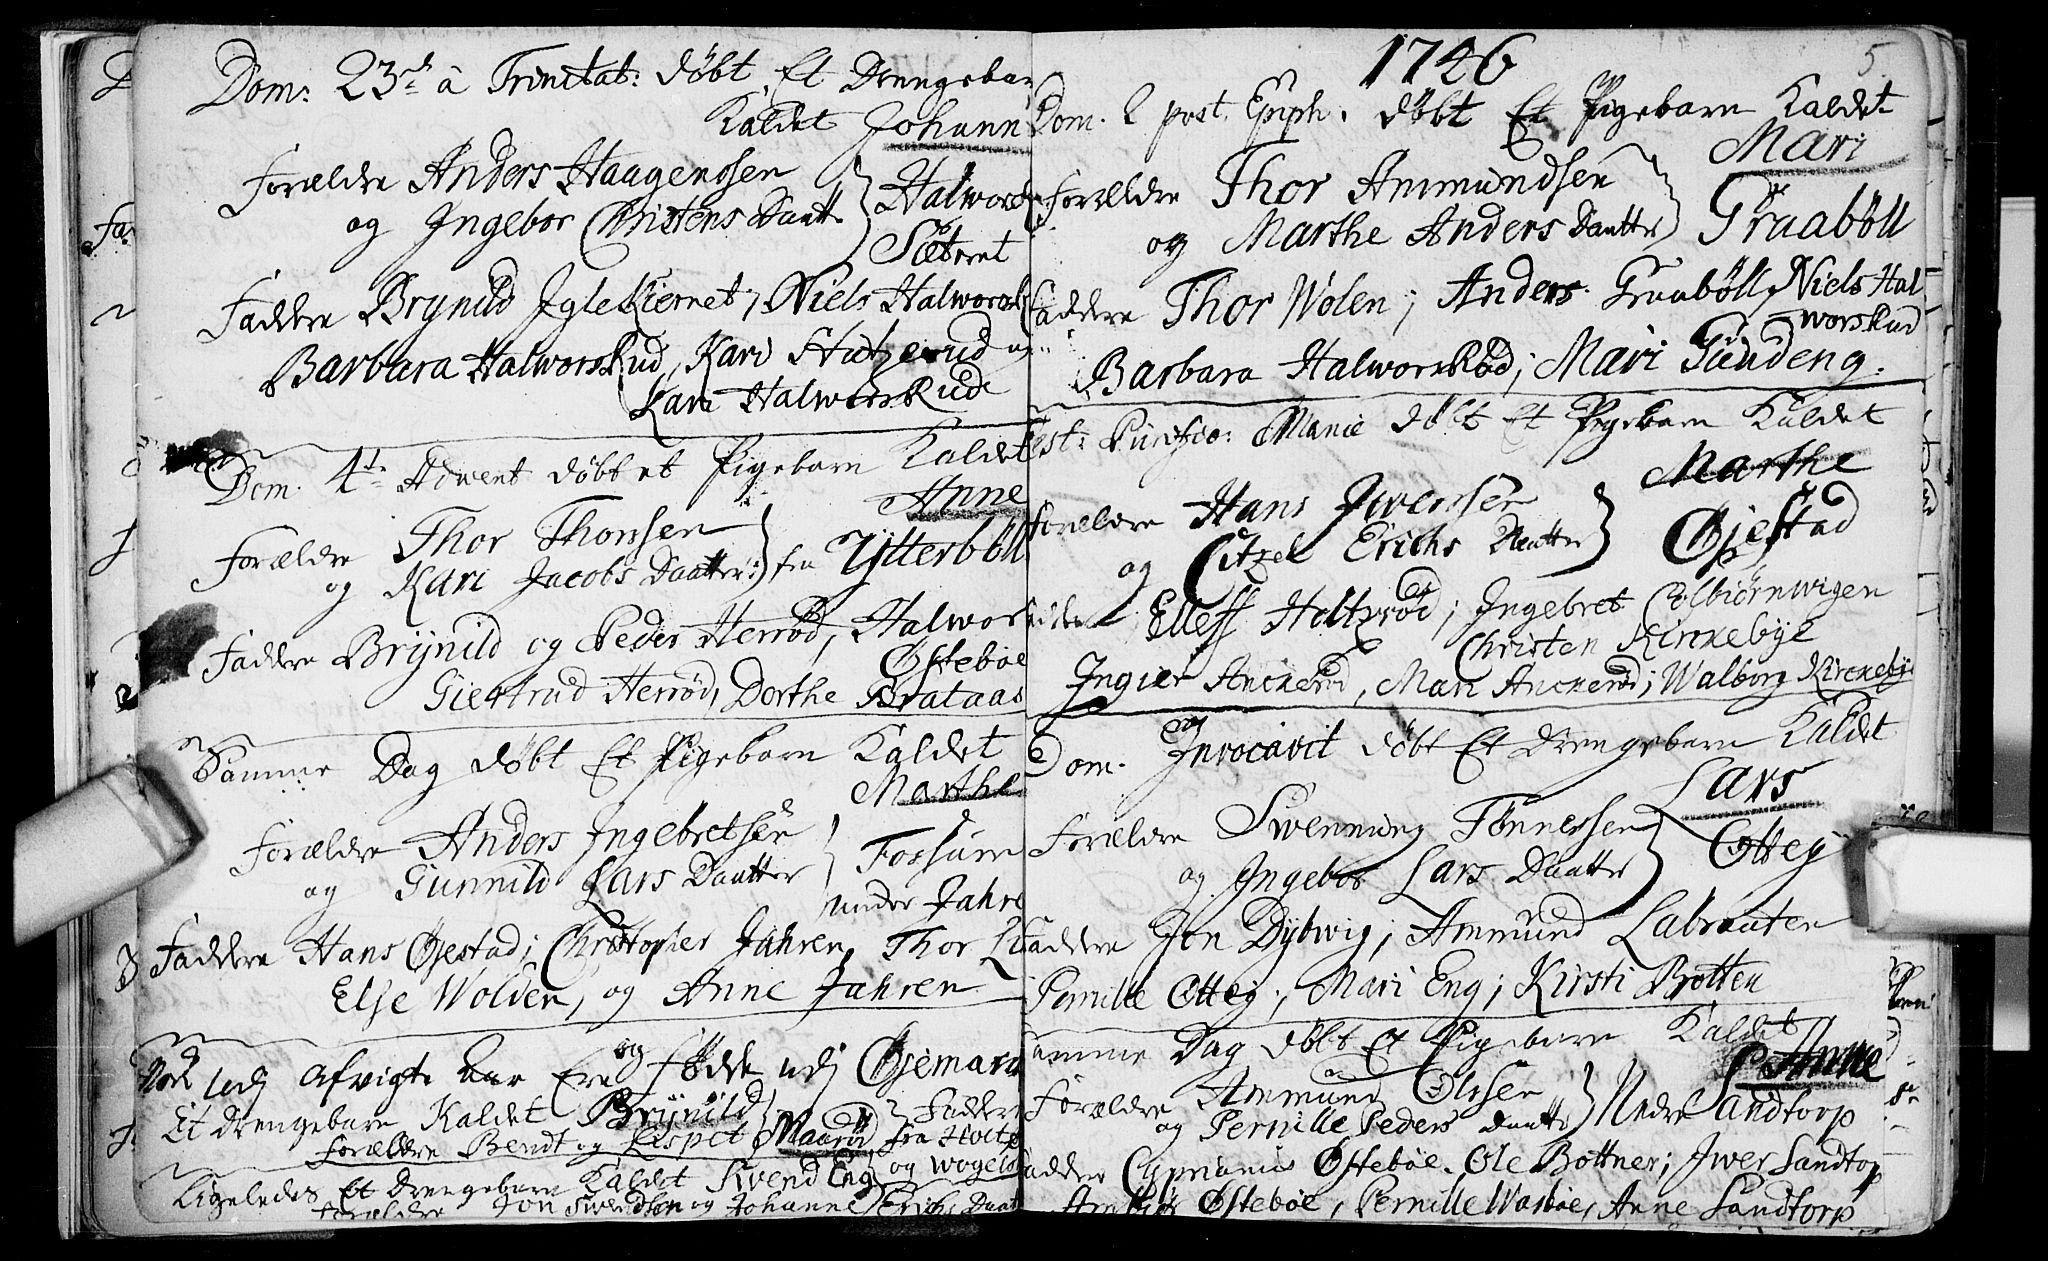 Dom: 23de à Trinitat: døbt Et Drengebarn
Kaldet Johann
Forældre Anders Haagensen
og Ingebor Christens Daatt:
Halwors
Sæteret
Faddere Brynild Iglekiernet, Niels Halworsk
Barbara Halworskud, Kari Stutzerud og
Kari Halworskud
Dom. 4de Advent døbt et Pigebarn Kaldet
Anne
Forældre Thor Thorsen
og Kari Jacobs Daatter: fra Ytterböll
Faddere Brynild og Peder Herröd, Halwor
Østeböe
Giertrud Herröd, Dorthe Brataas
Samme Dag døbt Et Pigebarn Kaldet
Marthe
Forældre Anders Ingebretsen
og Gunnild Lars Daatter
Fossum
under Jahre
Faddere Hans Øjestad; Christopher Jahren, Thor
Else Wolden, og Anne Jahren
Nock udj afvigte Aar Ere og Fødde udj Øjemarck
Et drengebarn Kaldet Brynild
Forældre Bendt og Maaröd
Faddere
fra
og
Ligeledes Et Drengebarn Kaldet Swend Eng
Forældre Jon Swendsen og Johanne Erichs Daat
1746
5.
Dom. 2 post. Epiph. døbt Et Pigebarn Kaldet
Mari
Forældre Thor Ammundsen
og Marthe Anders Daatter
Graaböll
Faddere Thor Wolen; Anders Graaböll, Niels Hal-
worskud
Barbara Halworsköd; Mari Sundeng.
Fest: Purific: Mariæ døbt Et Pigebarn Kaldet
Marthe
Forældre Hans Iwerssen
og Citzel Erichs Daatter
Øjestad
Faddere Elleff Holtzröd; Ingebret Colbiörnwigen
Christen Kirckebye
Ingier Anckeröd, Mari Anckeröd; Walborg Kirckebye
Dom. Invocavit og døbt Et Drengebarn Kaldet
Lars
Forældre Swenning Tönnessen
og Ingebor Lars Daatter
Otteg
Faddere Jon Dybwig; Ammund Labraaten
Pernille Otteg; Mari Eng; Kirsti Bråtten
Samme Dag døbt Et Pigebarn Kaldet
Anne
Forældre Ammund Olssen
og Pernille Peders daatter
Nedre Sandtorp
Faddere Cyprianus Østeböe. Ole Bottner; Iwer Sandtorp
Østeböe, Pernille Wasböe, Anne Sandtorp